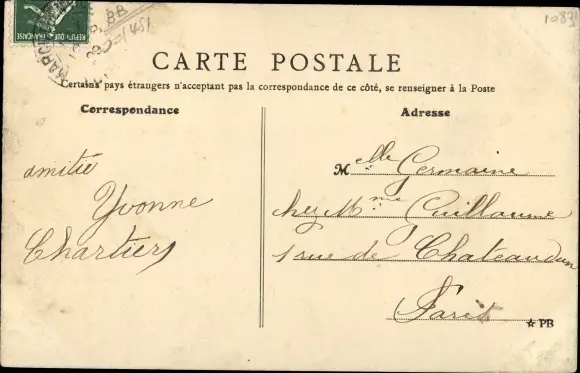 RÉPUBLIQUE FRANÇAISE
BB
1083
CARTE POSTALE
Certains pays étrangers n'acceptant pas la correspondance de ce côté, se renseigner à la Poste
Correspondance
Adresse
amitié
Yvonne
Chartier
Mlle Germaine
chez Mme Guillaume
1 rue de Chateaudun
Paris
☆ PB